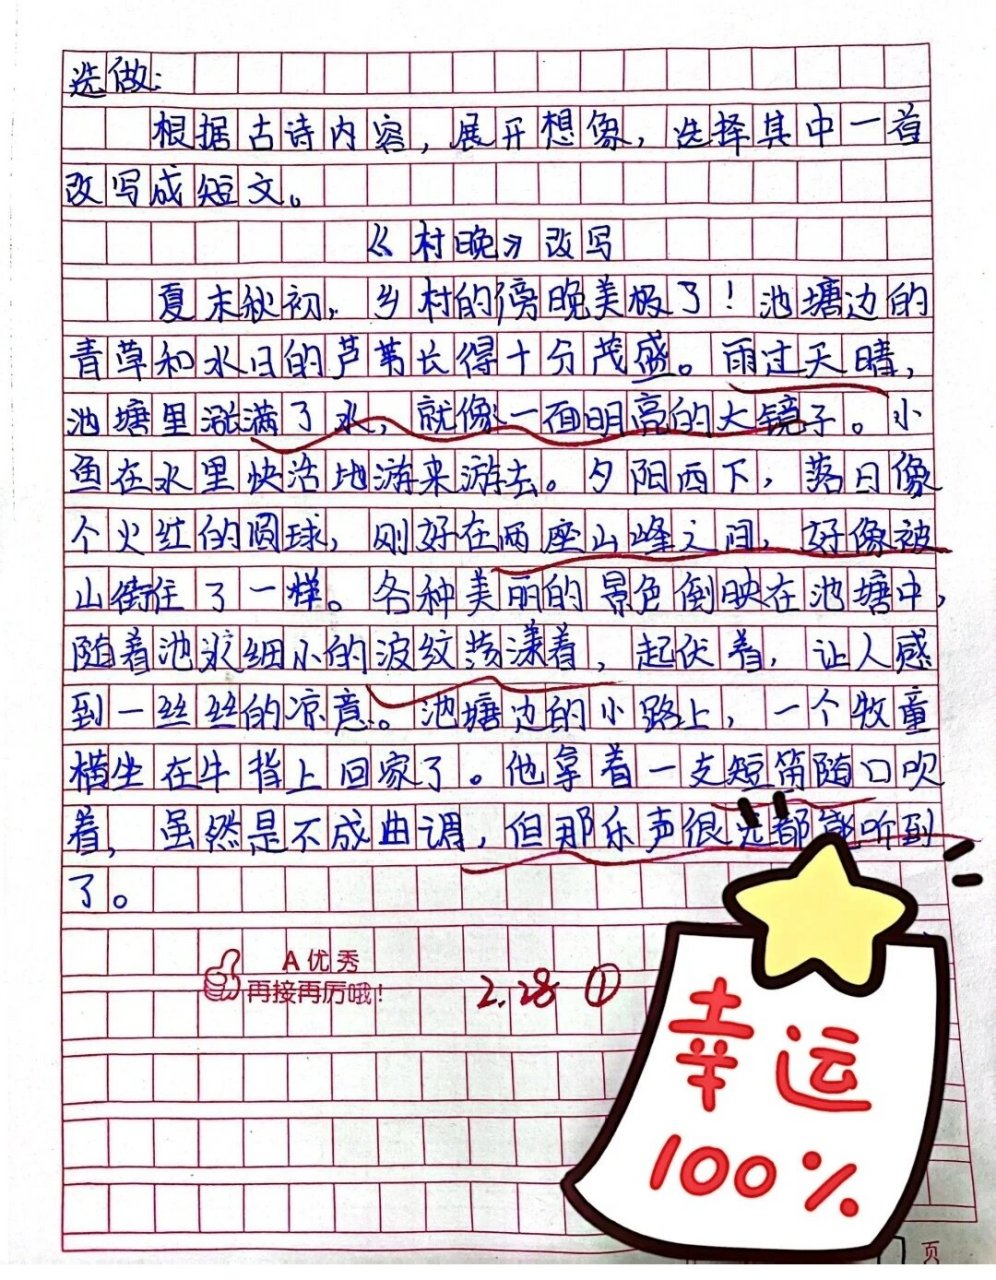 选做:
根据古诗内容,展开想像,选择其中一首
改写成短文。
《村晚》改写
夏末秋初,乡村的傍晚美极了!池塘边的
青草和水日的芦苇长得十分茂盛。雨过天晴,
池塘里涨满了水,就像一面明亮的大镜子。小
鱼在水里快活地游来游去。夕阳西下,落日像
个火红的圆球,刚好在两座山峰之间,好像被
山衔住了一样。各种美丽的景色倒映在池塘中,
随着池水细小的波纹荡漾着,起伏着,让人感
到一丝丝的凉意。池塘边的小路上,一个牧童
横坐在牛背上回家了。他拿着一支短笛随口吹
着,虽然是不成曲调,但那乐声很远都能听到
了。
A优秀
再接再厉哦!
2.28 ①
幸运
100%
页